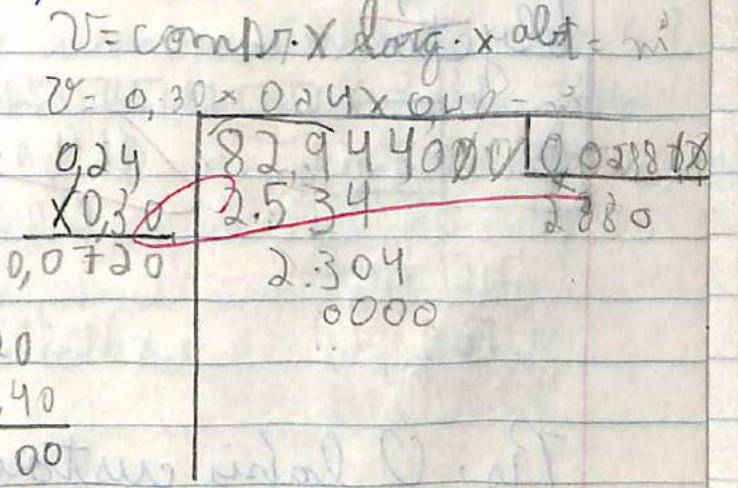 V = comp. x larg. x alt = m³
V = 0,30 x 0,24 x 0,40 = m³
0,24
x 0,30
0,0720
0
40
00
82,9440000 | 0,028800
2.534 2880
2.304
0000